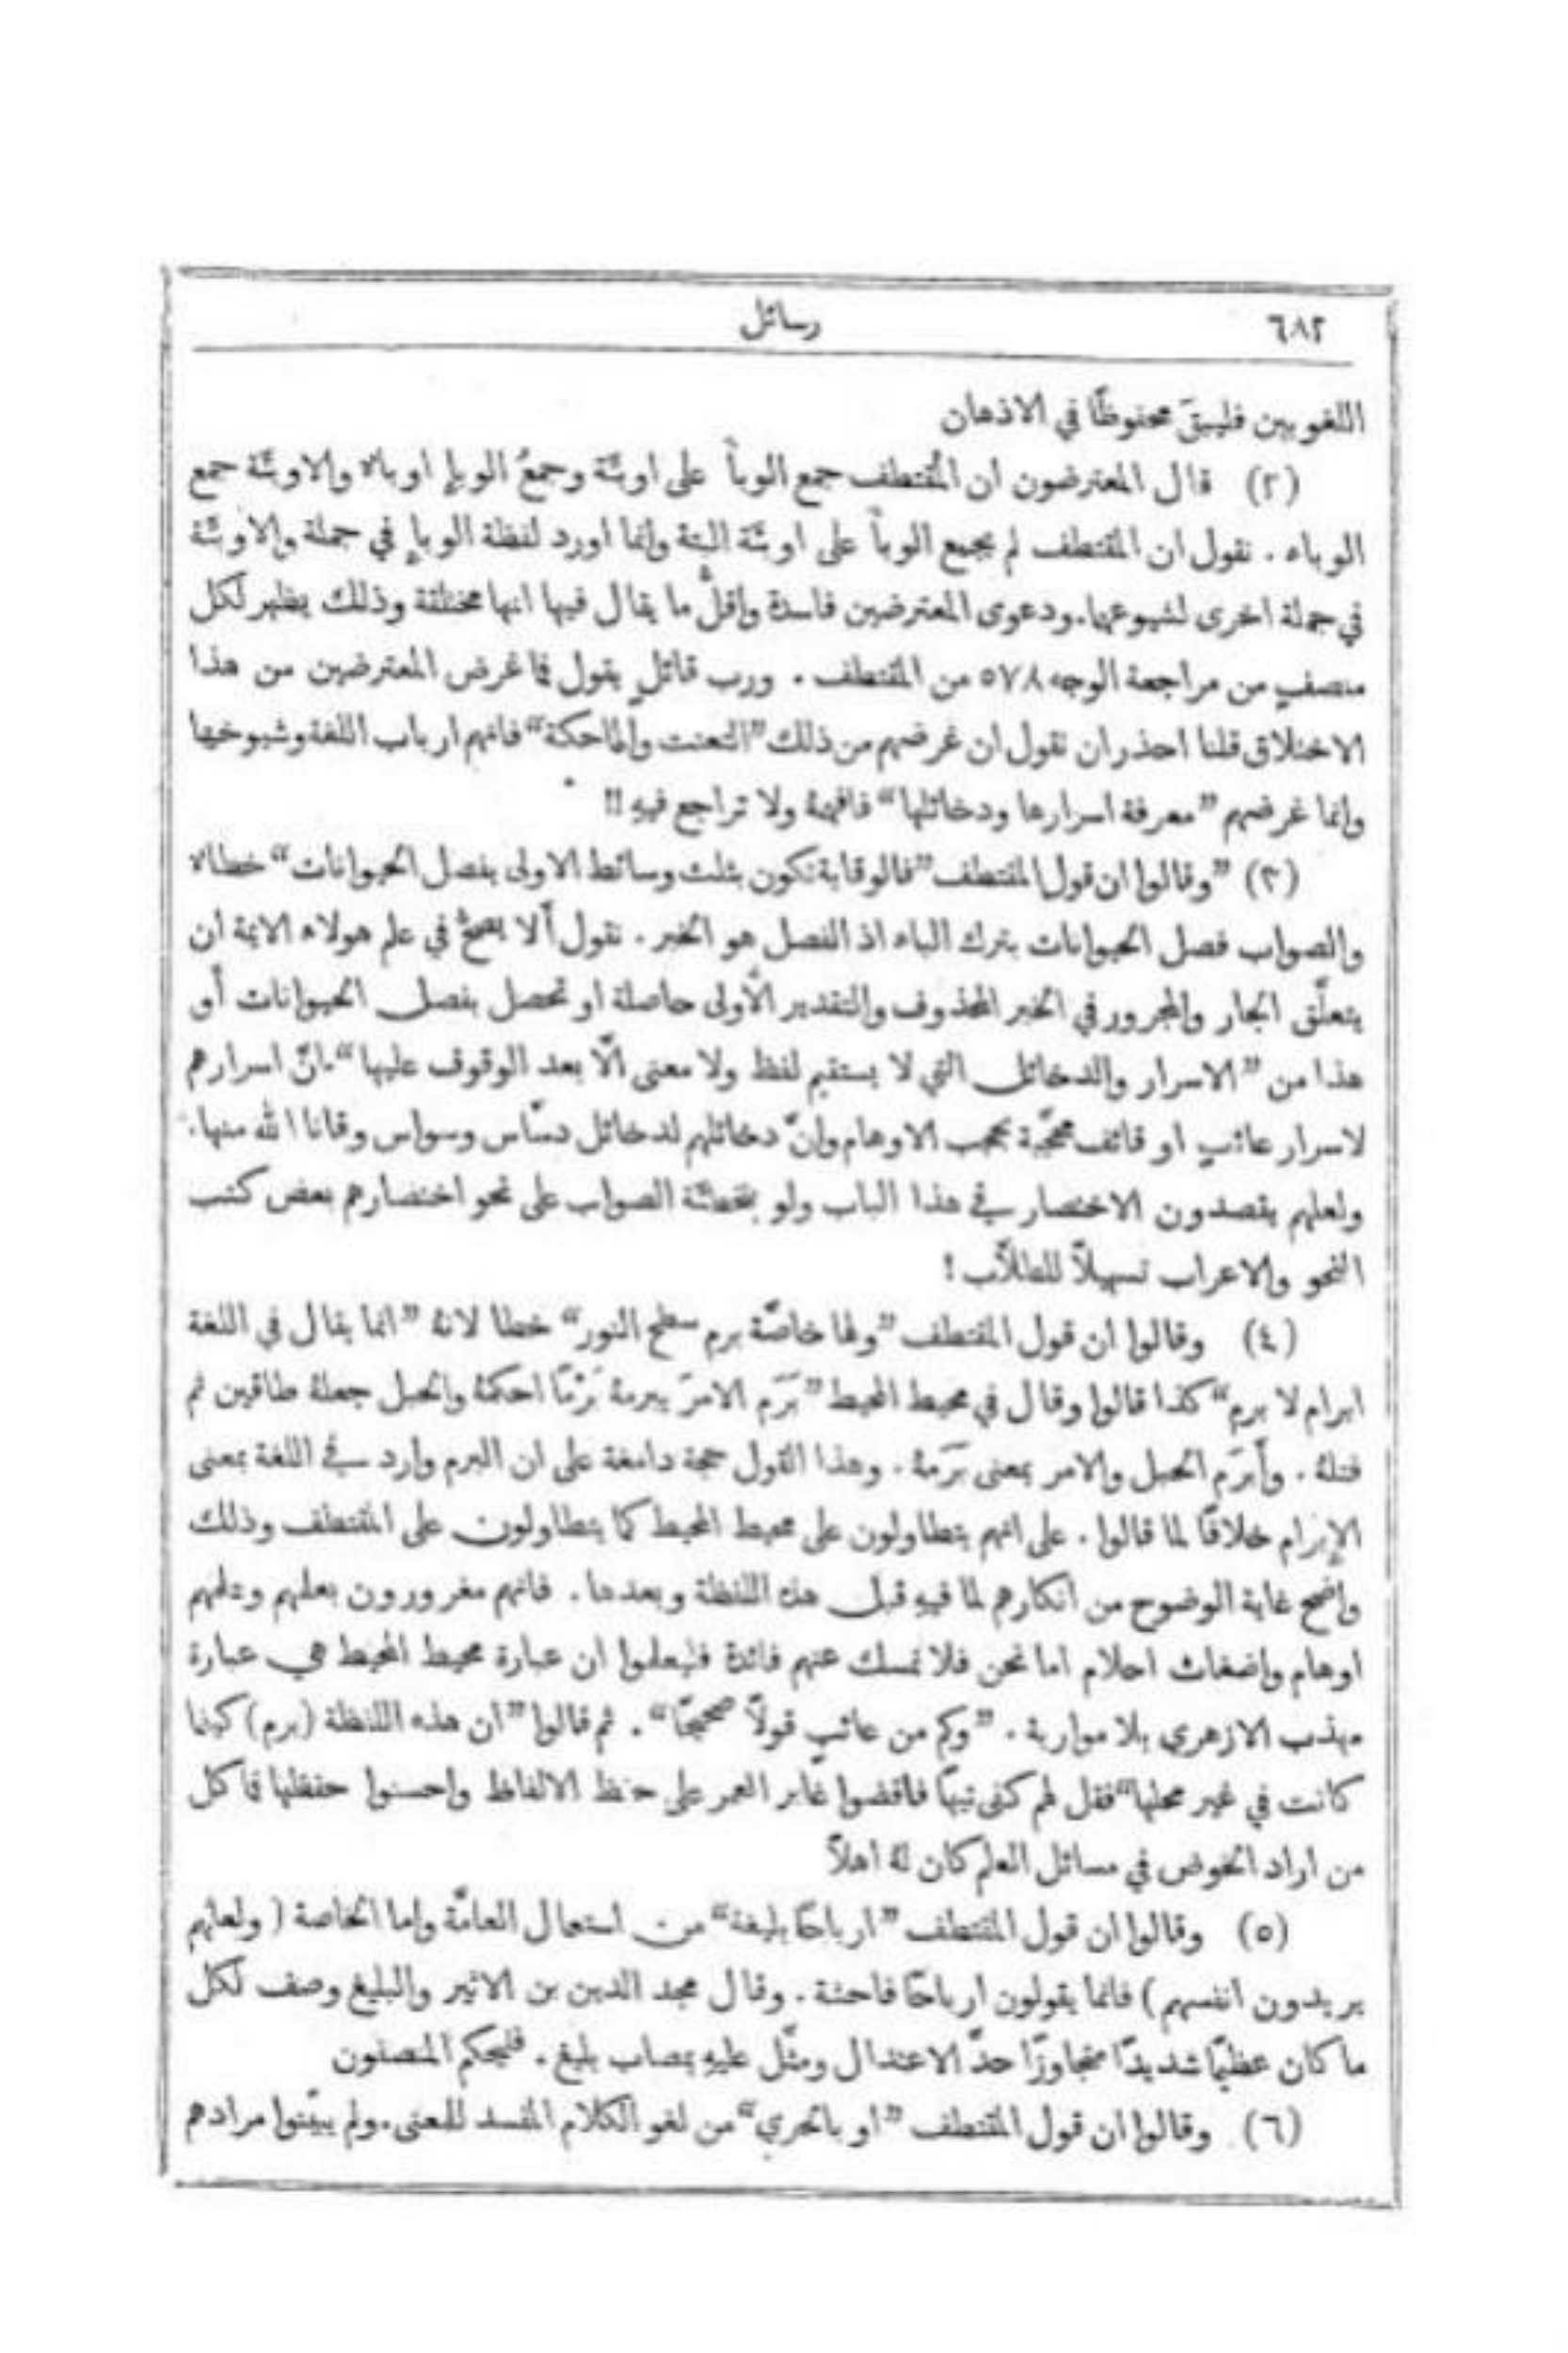 ٦٨٢
رسائل
اللغويين فليبقَ محفوظًا في الاذهان
(٢) قال المعترضون ان المُقتطف جمع الوبأ على اوبئَة وجمعُ الوبإِ اوبالا والاوبئَة جمع
الوباء . نقول ان المقتطف لم يجمع الوبأ على اوبئَة البتة وانما اورد لفظة الوبإِ في جملة والاوبئَة
في جملة اخرى لشيوعها. ودعوى المعترضين فاسدة واقلُّ ما يقال فيها انها مختلقة وذلك يظهر لكل
منصفٍ من مراجعة الوجه ٥٧٨ من المقتطف . ورب قائلٍ يقول فما غرض المعترضين من هذا
الاختلاق قلنا احذر ان نقول ان غرضهم من ذلك ”التعنت والماحكة“ فانهم ارباب اللغة وشيوخها
وانما غرضهم ”معرفة اسرارها ودخائلها“ فافهمهُ ولا تراجع فيهِ !!
(٣) ”وقالوا ان قول المقتطف ”فالوقاية تكون بثلث وسائط الاولى بفصل الحيوانات“ خطالا
والصواب فصل الحيوانات بترك الباء اذ الفصل هو الخبر . نقول أَلا يصحُّ في علم هولاء الايمة ان
يتعلَّق الجار والمجرور في الخبر المحذوف والتقدير الأُولى حاصلة او تحصل بفصل الحيوانات أَو
هذا من ”الاسرار والدخائل التي لا يستقيم لفظ ولا معنى الَّا بعد الوقوف عليها“. انَّ اسرارهم
لاسرار عائبٍ او قائف محجَّبة بحجب الاوهام وانَّ دخائلهم لدخائل دسَّاس وسواس وقانا الله منها.
ولعلهم يقصدون الاختصار في هذا الباب ولو بتخطئَة الصواب على نحو اختصارهم بعض كتب
النحو والاعراب تسهيلًا للطلَّاب !
(٤) وقالوا ان قول المقتطف ”ولها خاصَّة برم سطح النور“ خطا لانهُ ”انما يقال في اللغة
ابرام لا برم“ كذا قالوا وقال في محيط المحيط ”بَرَم الامرَ يبرمهُ بَرْمًا احكمهُ والحبل جعلهُ طاقين ثم
فتلهُ . وأَبرَم الحبل والامر بمعنى بَرَمهُ . وهذا القول حجة دامغة على ان البرم وارد في اللغة بمعنى
الإِبرام خلافًا لما قالوا . على انهم يتطاولون على محيط المحيط كما يتطاولون على المقتطف وذلك
واضح غاية الوضوح من انكارهم لما فيهِ قبل هذه اللفظة وبعدها . فانهم مغرورون بعلمهم وعلمهم
اوهام واضغاث احلام اما نحن فلا نمسك عنهم فائدة فليعلموا ان عبارة محيط المحيط هي عبارة
مهذب الازهري بلا مواربة . ”وكم من عائبٍ قولًا صحيحًا“ . ثم قالوا ”ان هذه اللفظة (برم) كيفما
كانت في غير محلها“ فقل لهم كفى تيهًا فاقضوا غابر العمر على حفظ الالفاظ واحسنوا حفظها فما كل
من اراد الخوض في مسائل العلم كان لهُ اهلًا
(٥) وقالوا ان قول المقتطف ”ارباحًا بليغة“ من استعمال العامَّة واما الخاصة (ولعلهم
يريدون انفسهم) فانما يقولون ارباحًا فاحشة . وقال مجد الدين بن الاثير والبليغ وصف لكل
ما كان عظيمًا شديدًا متجاوزًا حدَّ الاعتدال ومثَّل عليهِ بمصاب بليغ . فليحكم المنصفون
(٦) وقالوا ان قول المقتطف ”او بالحري“ من لغو الكلام المفسد للمعنى. ولم يبيّنوا مرادهم